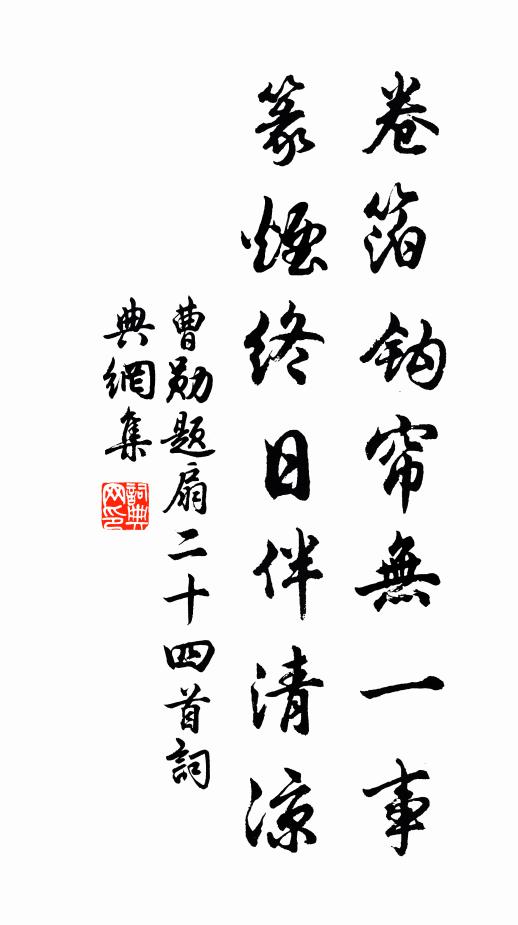 卷箔鈎帘無一事
篆煙終日伴清涼
曹勛題扇二十四首詞
典網集
詞典网印